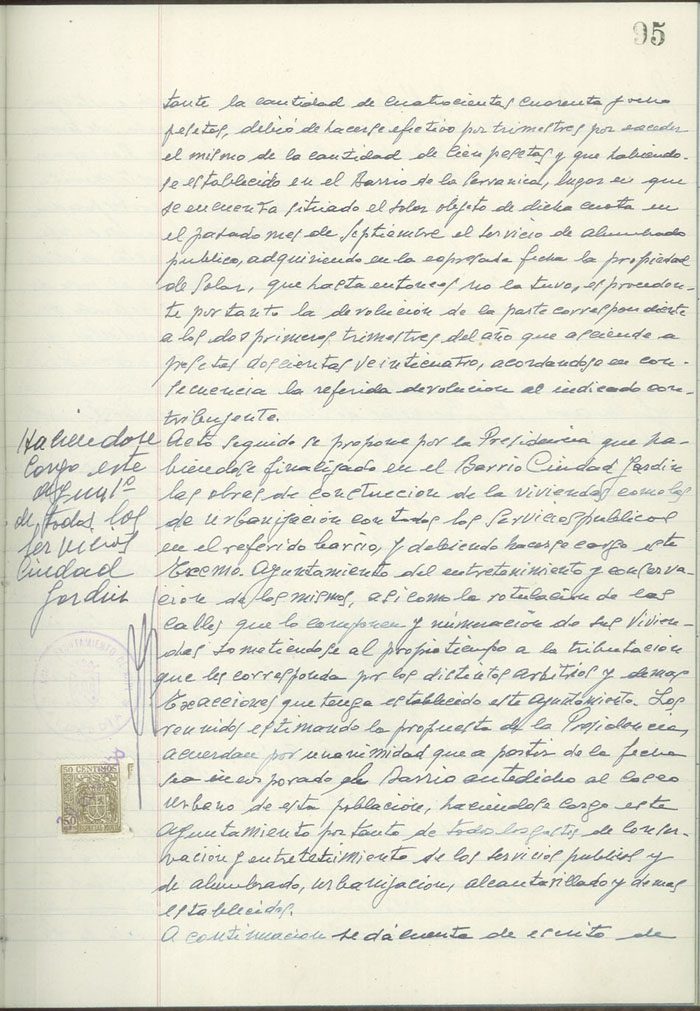 95
tante la cantidad de cuatrocientas cuarenta y ocho
pesetas, debió de hacerse efectivo por trimestres por exceder
el mismo de la cantidad de cien pesetas y que habiendo-
se establecido en el Barrio de la Serranica, lugar en que
se encuentra situado el solar objeto de dicha cuota en
el pasado mes de Septiembre el servicio de alumbrado
publico, adquiriendo en la expresada fecha la propiedad
de Solar, que hasta entonces no la tuvo, es proceden-
te por tanto la devolución de la parte correspondiente
a los dos primeros trimestres del año que asciende a
pesetas doscientas veinticuatro, acordandose en con-
secuencia la referida devolucion al indicado con-
tribuyente.
Haciendose
cargo este
Ayunto
de todos los
servicios
Ciudad
Jardin
Acto seguido se propone por la Presidencia que ha-
biendose finalizado en el Barrio Ciudad Jardin
las obras de construccion de la viviendas como las
de urbanizacion con todos los servicios publicos
en el referido barrio, y debiendo hacerse cargo este
Excmo. Ayuntamiento del entretenimiento y conserva-
cion de los mismos, asi como la rotulación de las
calles que lo componen y numeración de sus vivien-
das sometiendose al propio tiempo a la tributacion
que les corresponda por los distintos arbitrios y demas
Exacciones que tenga establecido este Ayuntamiento. Los
reunidos estimando la propuesta de la Presidencia,
acuerdan por unanimidad que a partir de la fecha
sea incorporado el Barrio antedicho al Casco
Urbano de esta población, haciendose cargo este
Ayuntamiento por tanto de todos los gastos de conser-
vacion y entretenimiento de los servicios publicos y
de alumbrado, urbanizacion, alcantarillado y demas
establecidos.
A continuacion se dá cuenta de escrito de
50 CENTIMOS